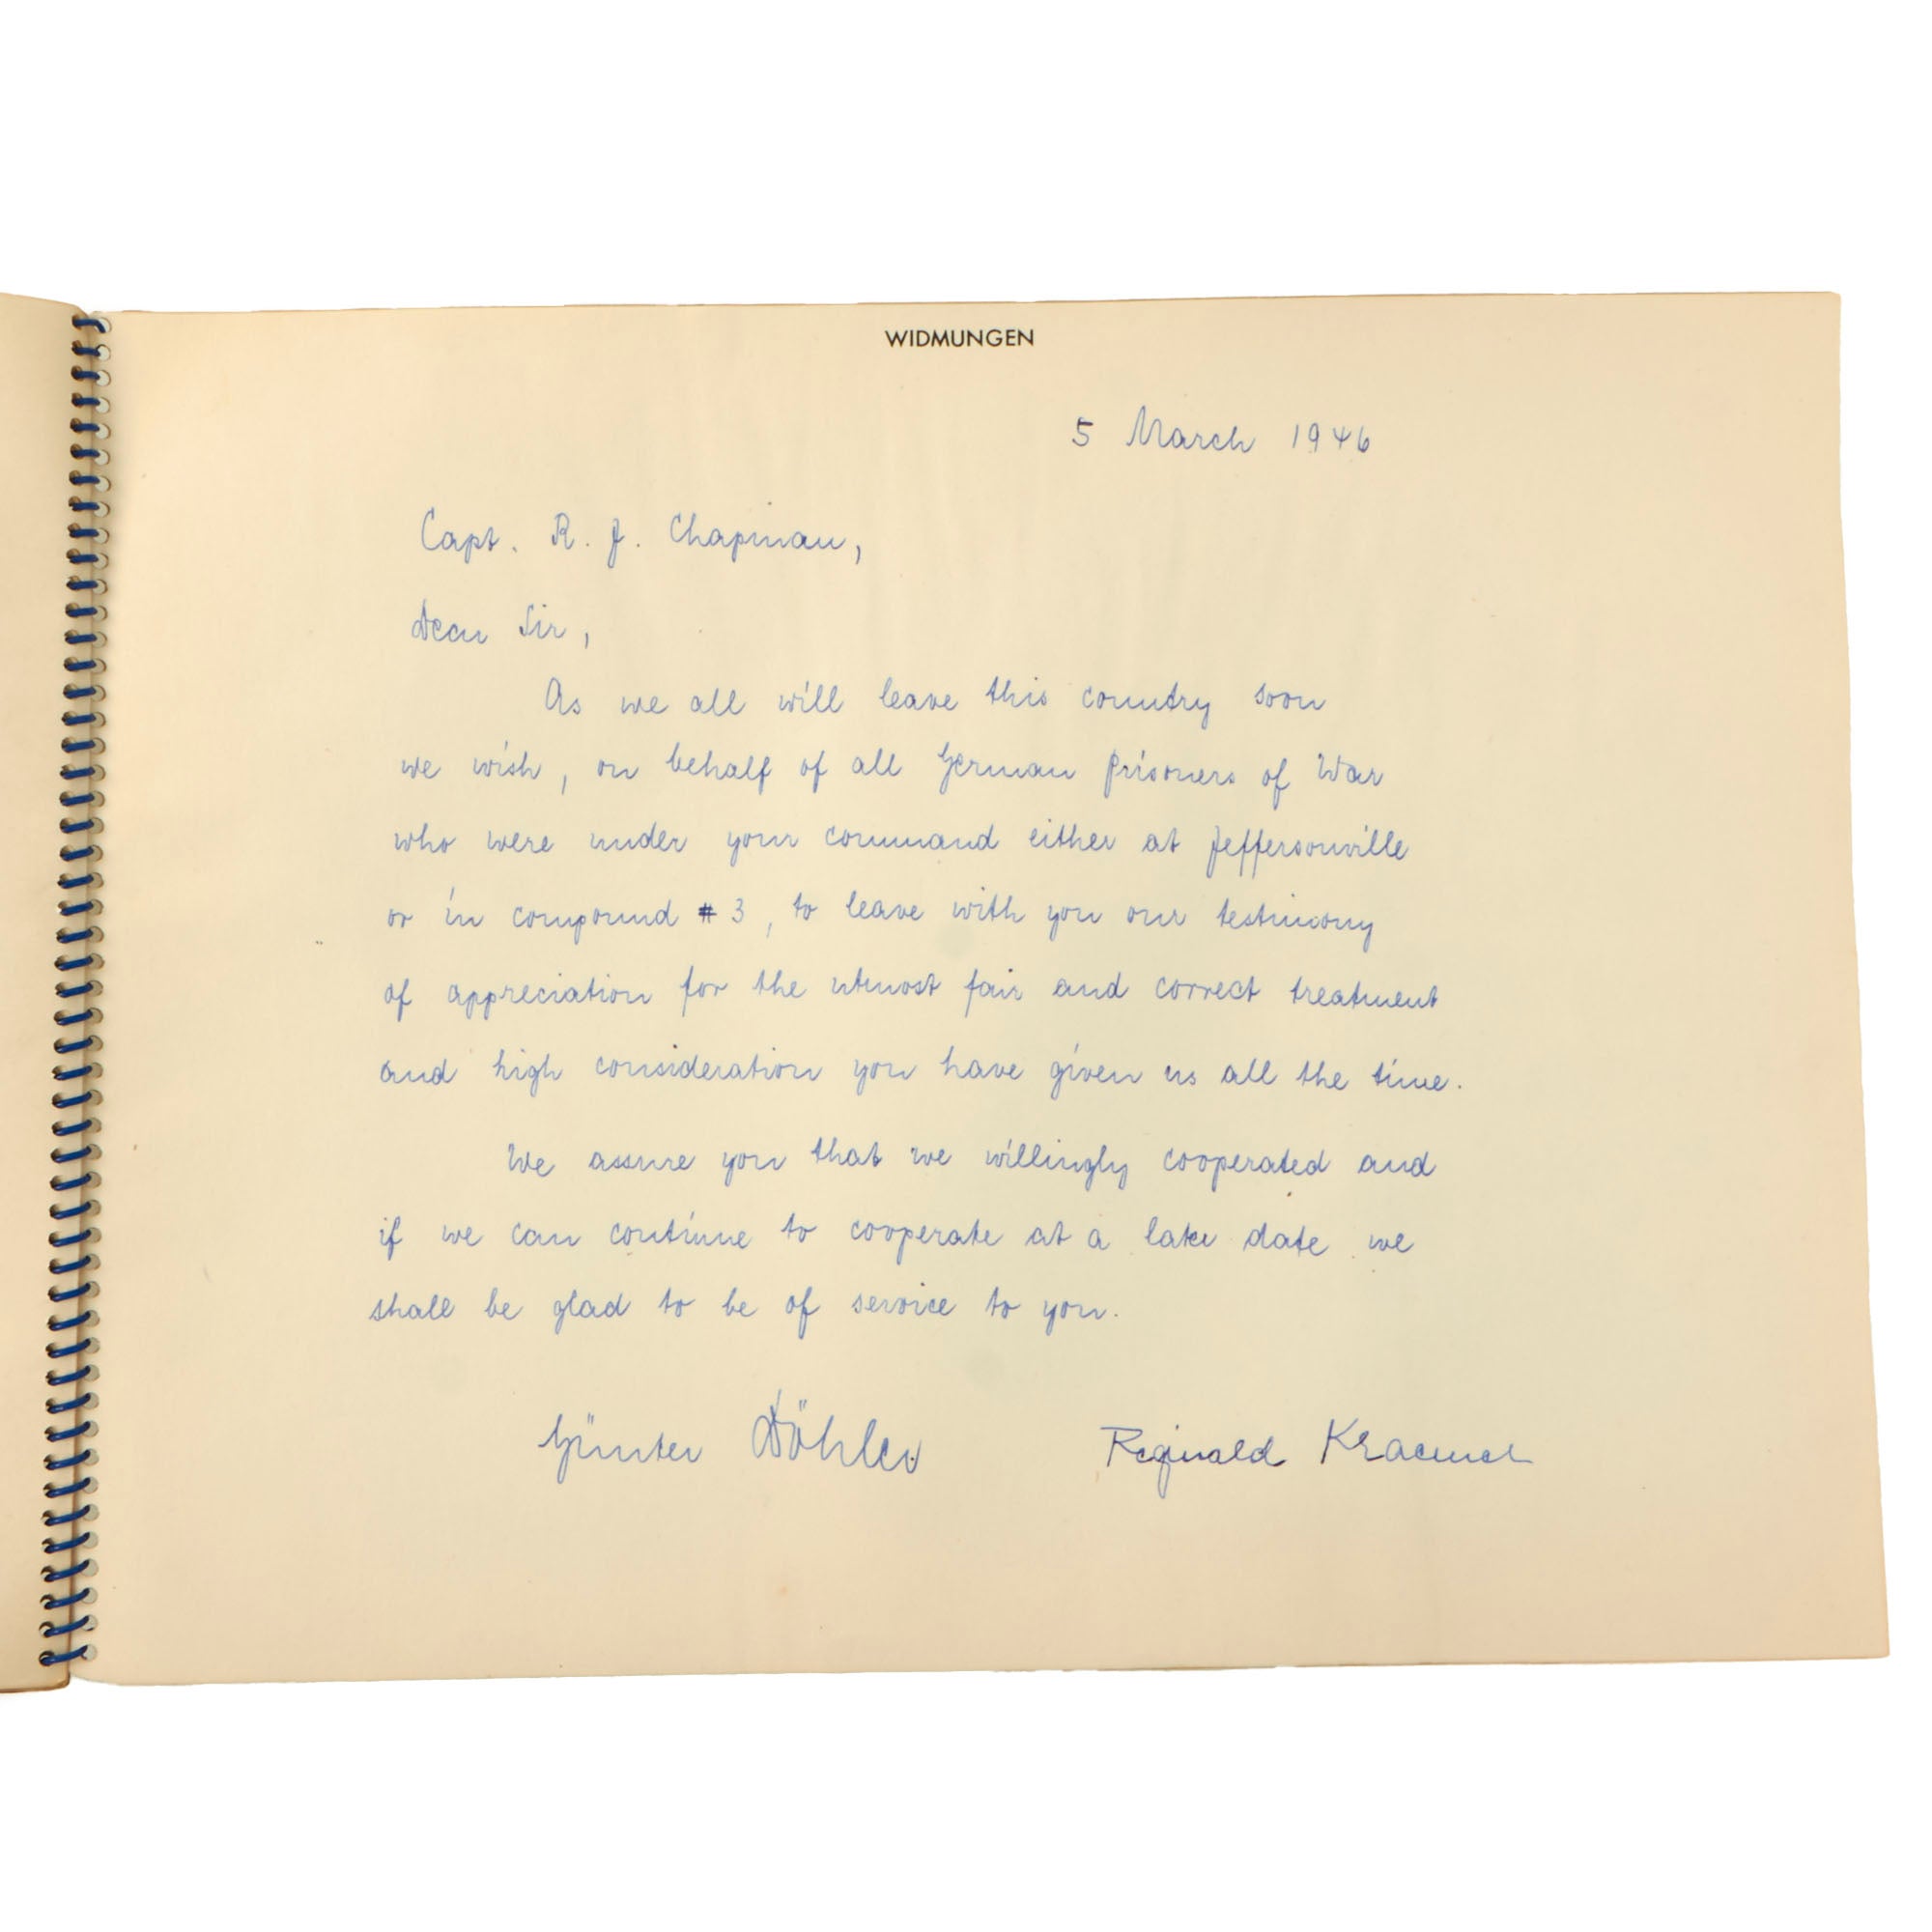 WIDMUNGEN
5 March 1946
Capt. R. J. Chapman,
Dear Sir,
As we all will leave this country soon
we wish, on behalf of all German prisoners of War
who were under your command either at Jeffersonville
or in compound # 3, to leave with you our testimony
of appreciation for the utmost fair and correct treatment
and high consideration you have given us all the time.
We assure you that we willingly cooperated and
if we can continue to cooperate at a later date we
shall be glad to be of service to you.
Günter Döhler Reginald Kraemer